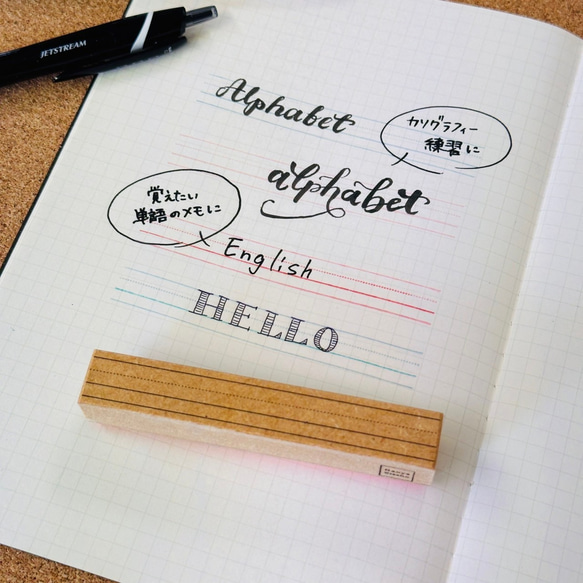 JETSTREAM
Alphabet
カリグラフィー
練習に
alphabet
覚えたい
単語のメモに
English
HELLO